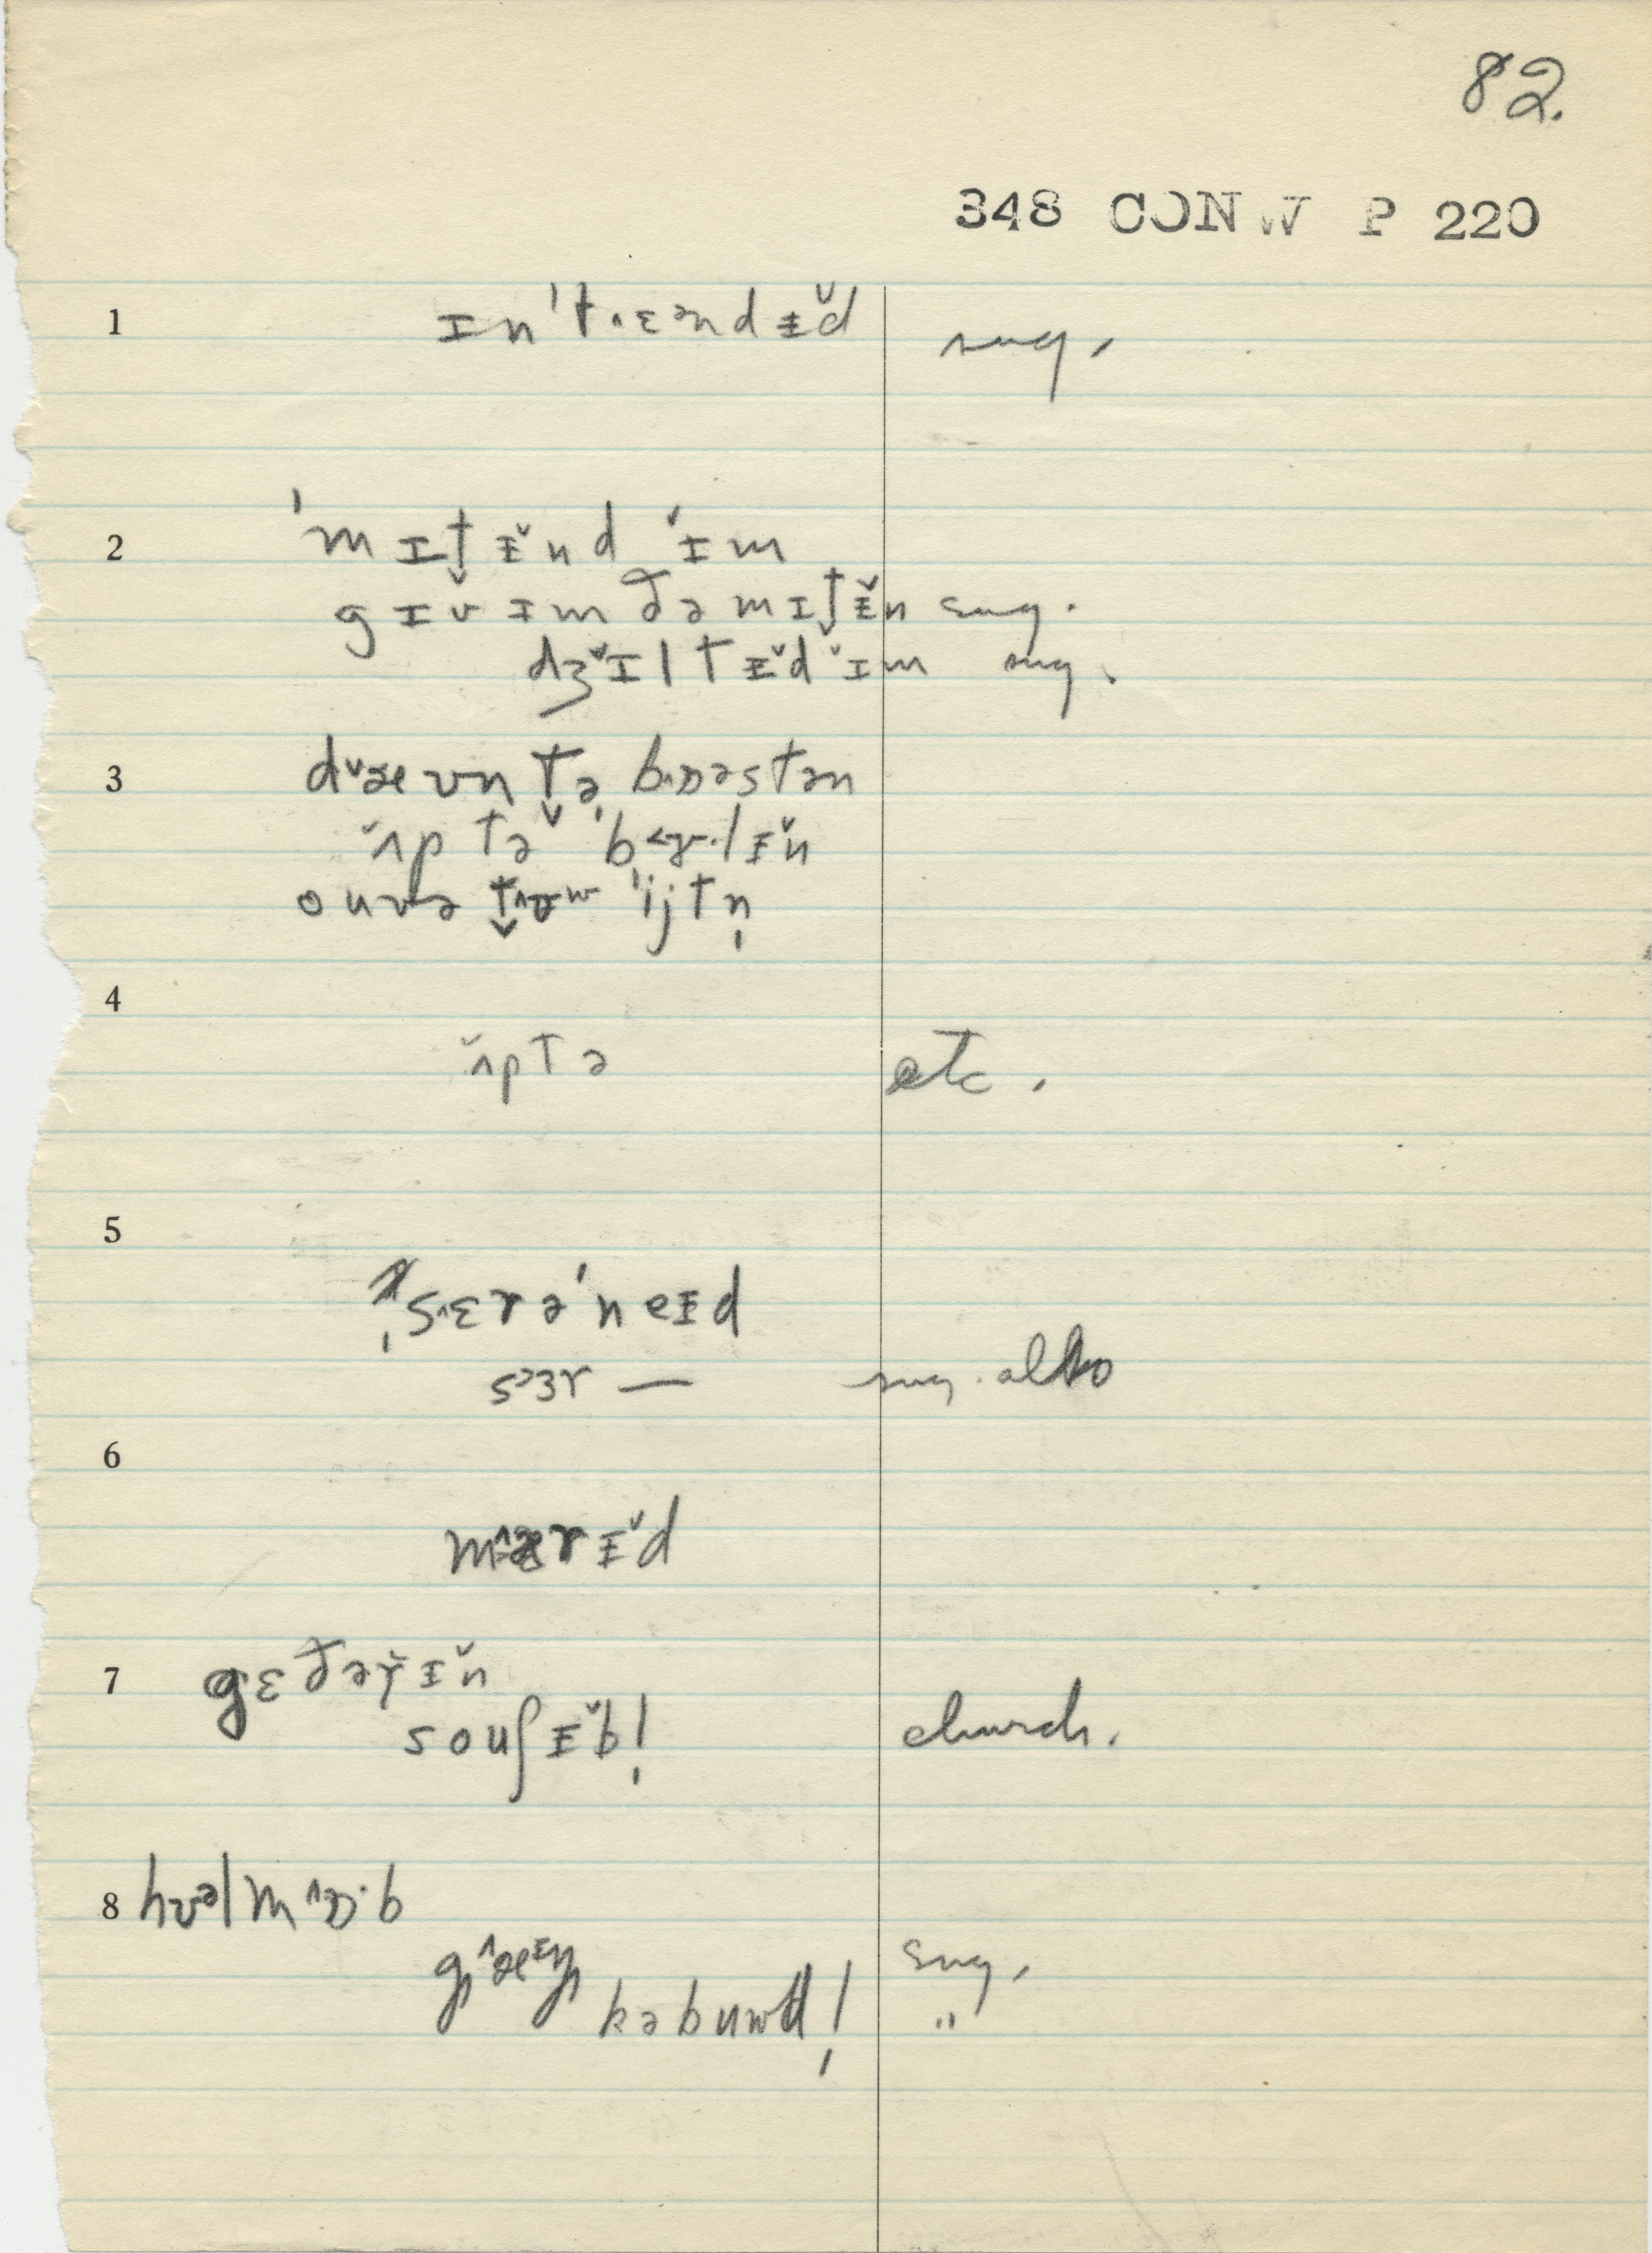 82.
348 CONW P 220
1 ɪn't˄ɛəndɨ̆d sug.
2 'mɪt̬ɨ̆nd ɪ̆m
gɪv ɪm ðə mɪt̬ɨ̆n sug.
dʒɪ̆ltɨ̆d ɪ̆m sug.
3 dæ̆ʊn t̬ə bɒəstən
ʌ̆p t̬ə 'b˂ɤ·lɨ̆n
oʊvə t̬˄ɒw 'ijtn̩
4
ʌ̆p tə etc.
5
s˄ɛrə'neɪd
s˃ɜr — sug. also
6
m˄ærɨ̆d
7 gɛðəɤ̆ɨ̆n
soʊʃɨ̆bl̩ church.
8 hʊəlm˄ɒ·b
g˄æᵻŋ sug.
kəbuwdl̩ "